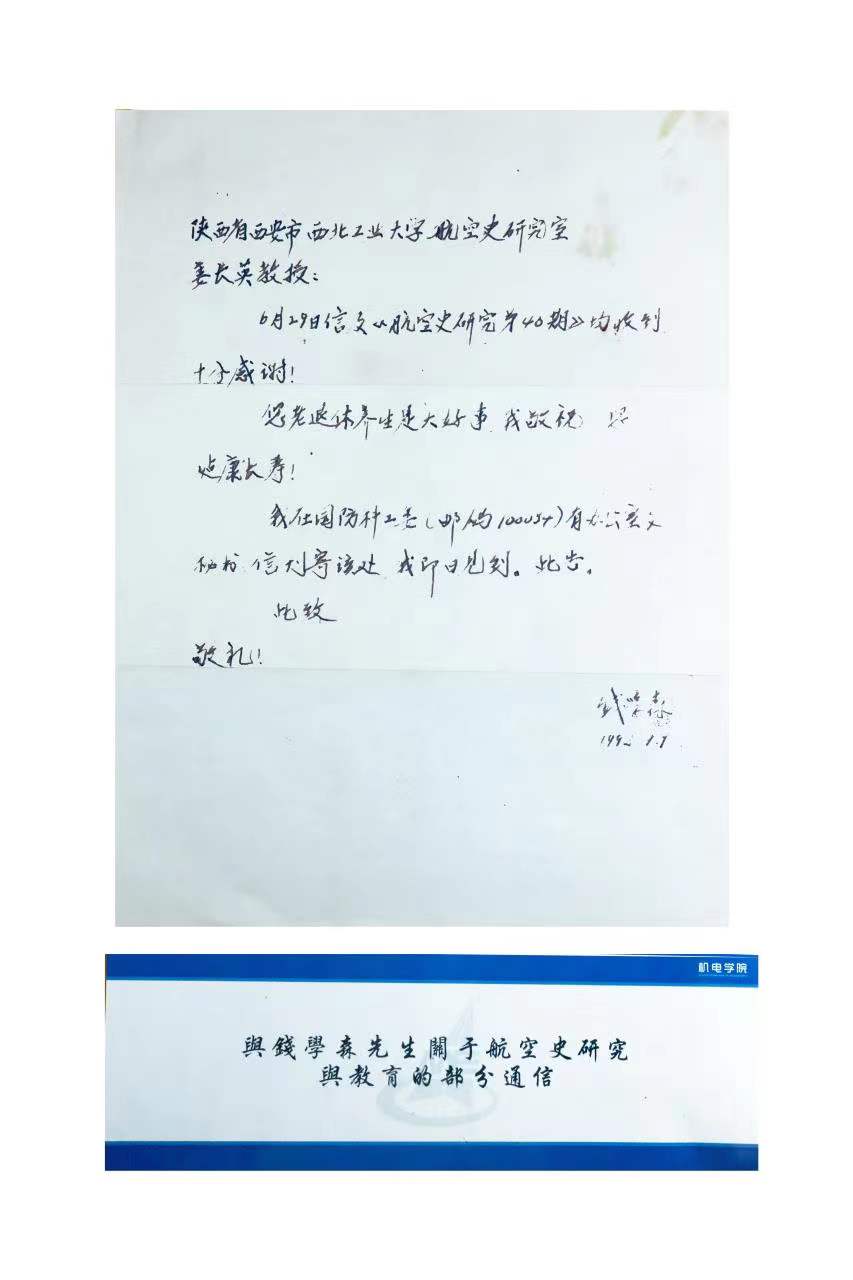 陕西省西安市西北工业大学航空史研究室
姜长英教授:
6月29日信及《航空史研究第40期》均收到
十分感谢!
您老退休养生是大好事 我敬祝 您
健康长寿!
我在国防科工委(邮码100034)有办公室文
秘书 信刊寄该处 我即日见到。此告。
此致
敬礼!
钱学森
199 . .7
机电学院
與錢學森先生關于航空史研究
與教育的部分通信